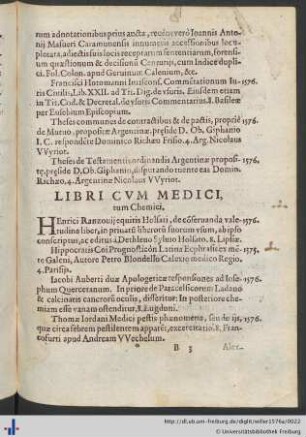 tum adnotationibus prius aucta, reuocvero Ioannis Anto-
nij Masueri Caramunensis innumeris accessionibus locu-
pletata, adiectis suis locis receptarum sententiarum, foren-
sium quæstionum & decisionũ Centurijs, cum Indice dupli-
ci. Fol. Colon. apud Geruinum Calenium, &c.
Francisci Hotomanni Iurisconf. Commẽtationum in Iu- 1576.
ris Ciuilis, Lib. XXII. ad Tit. Dig. de vsuris. Eiusdem etiam
in Tit. Cod. & Decretal. de vsuris Commentarius. 8. Basileæ
per Eusebium Episcopium.
Theses communes de contractibus & de pactis, proprie 1576.
de Mutuo, propositæ Argentinæ, præside D. Ob. Giphanio
I. C. respondẽte Dominico Richæo Frisio. 4. Arg. Nicolaus
VVyriot.
Theses de Testamentis ordinandis Argentinæ proposi- 1576.
tę, pręside D. Ob. Giphanio, disputando tuente eas Domin.
Richæo, 4. Argentinæ Nicolaus VVyriot.
LIBRI CVM MEDICI,
tum Chemici.
HEnrici Ranzouij equitis Holsati, de cõseruanda vale- 1576.
tudine liber, in priuatũ liberorũ suorum vsum, ab ipso
conscriptus, ac editus à Dethleuo Syluio Holsato. 8. Lipsiæ.
Hippocratis Coi Prognosticõn Latina Ecphrasis ex mẽ- 1575.
te Galeni, Autore Petro Blondello Calexio medico Regio,
4. Parisijs.
Iacobi Auberti duæ Apologeticæ responsiones ad Iose- 1576.
phum Quercetanum. In priore de Paracelsicorum Laudano
& calcinatis cancrorũ oculis, disseritur: In posteriore che-
miam esse vanam ostenditur, 8. Lugdoni.
Thomæ Iordani Medici pestis phænomena, seu de ijs, 1576.
quæ circa febrem pestilentem apparẽt, exercitatio. 8. Fran-
cofurti apud Andream VVechelum.
B 3 Alex.
http://dl.ub.uni-freiburg.de/diglit/willer1576a/0022
© Universitätsbibliothek Freiburg